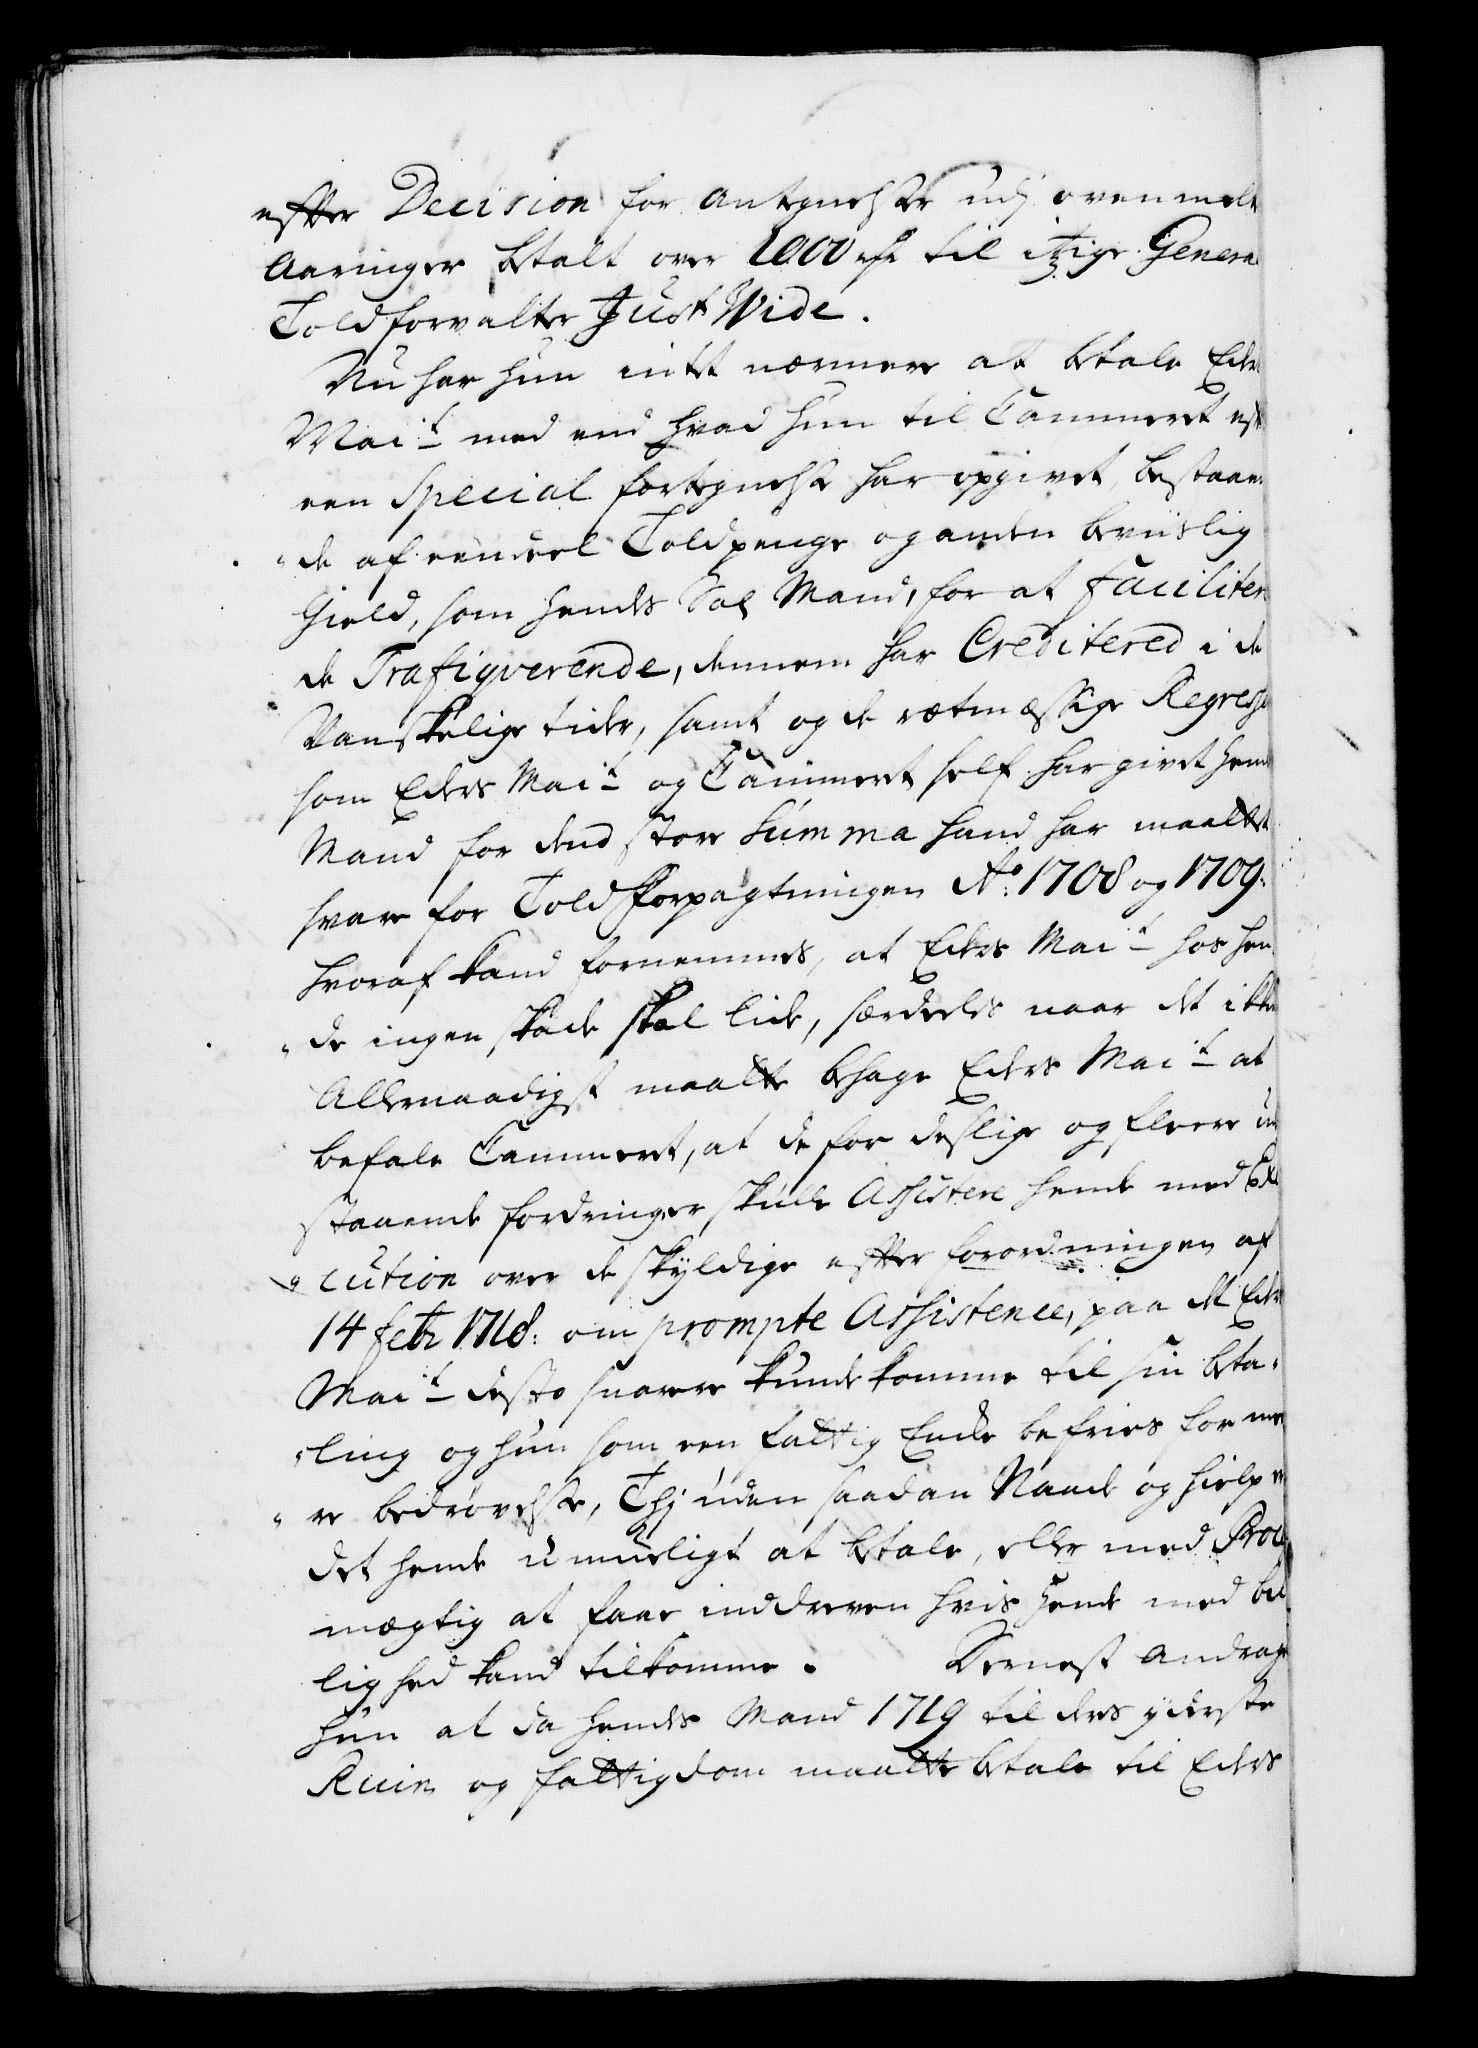 efter Decision for Antegnelser udj ovenmelte
Aaringer betalt over 1000 rdr til itzige General
Toldforvalter Just Wide.
Nu har hun intet nærmere at betale Eders
Mai.t med end hvad hun til Cammeret efter
een Special fortegnelse har opgivet, bestaaen„
„de af eendeel Toldpenge og anden beviislig
Gield, som hendes Sal. Mand, for at facilitere
de Trafiqverende, dennem har Creditered i de
Vanskelige tider, samt og de retmæssige Regresser
som Eders Mai.t og Cammeret self har givet hendes
Mand for dend store Summa hand har maattet
svare for Toldforpagtningen Ao. 1708 og 1709.
hvoraf kand fornemmes, at Eders Mai.t hos hen„
„de ingen skade skal lide, særdeeles naar det ikkun
Allernaadigst maatte behage Eders Mai.t at
befale Cammeret, at de for deslige og fleere ud
staaende fordringer skulle Assistere hende med Exe„
„cution over de skyldige efter forordningen af
14 febr 1718. om prompte Assistence, paa det Eders
Mai.t desto snarere kunde komme til sin beta„
„ling og hun som een fattig Encke befries for mee„
„re bedrøvelse, Thj uden saadan Naade og hielp er
det hende umueligt at betale, eller med Proces
mægtig at faae inddreven hvis hende med bil„
lighed kand tilkomme. Dernest andrager
hun at da hendes Mand 1719 til deres yderste
Ruin og fattigdom maatte betale til Eders